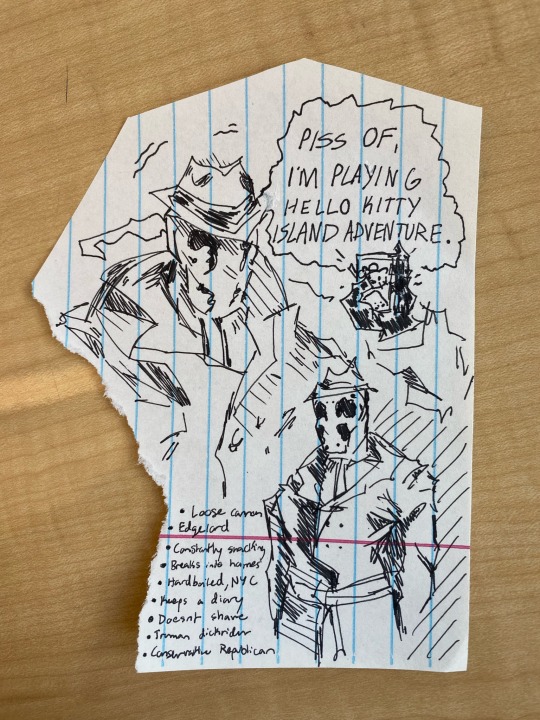 PISS OF,
I'M PLAYING
HELLO KITTY
ISLAND ADVENTURE.
• Loose cannon
• Edgelord
• Constantly snacking
• Breaks into homes
• Hardboiled, NYC
• Keeps a diary
• Doesnt shave
• Truman dickrider
• Conservative Republican